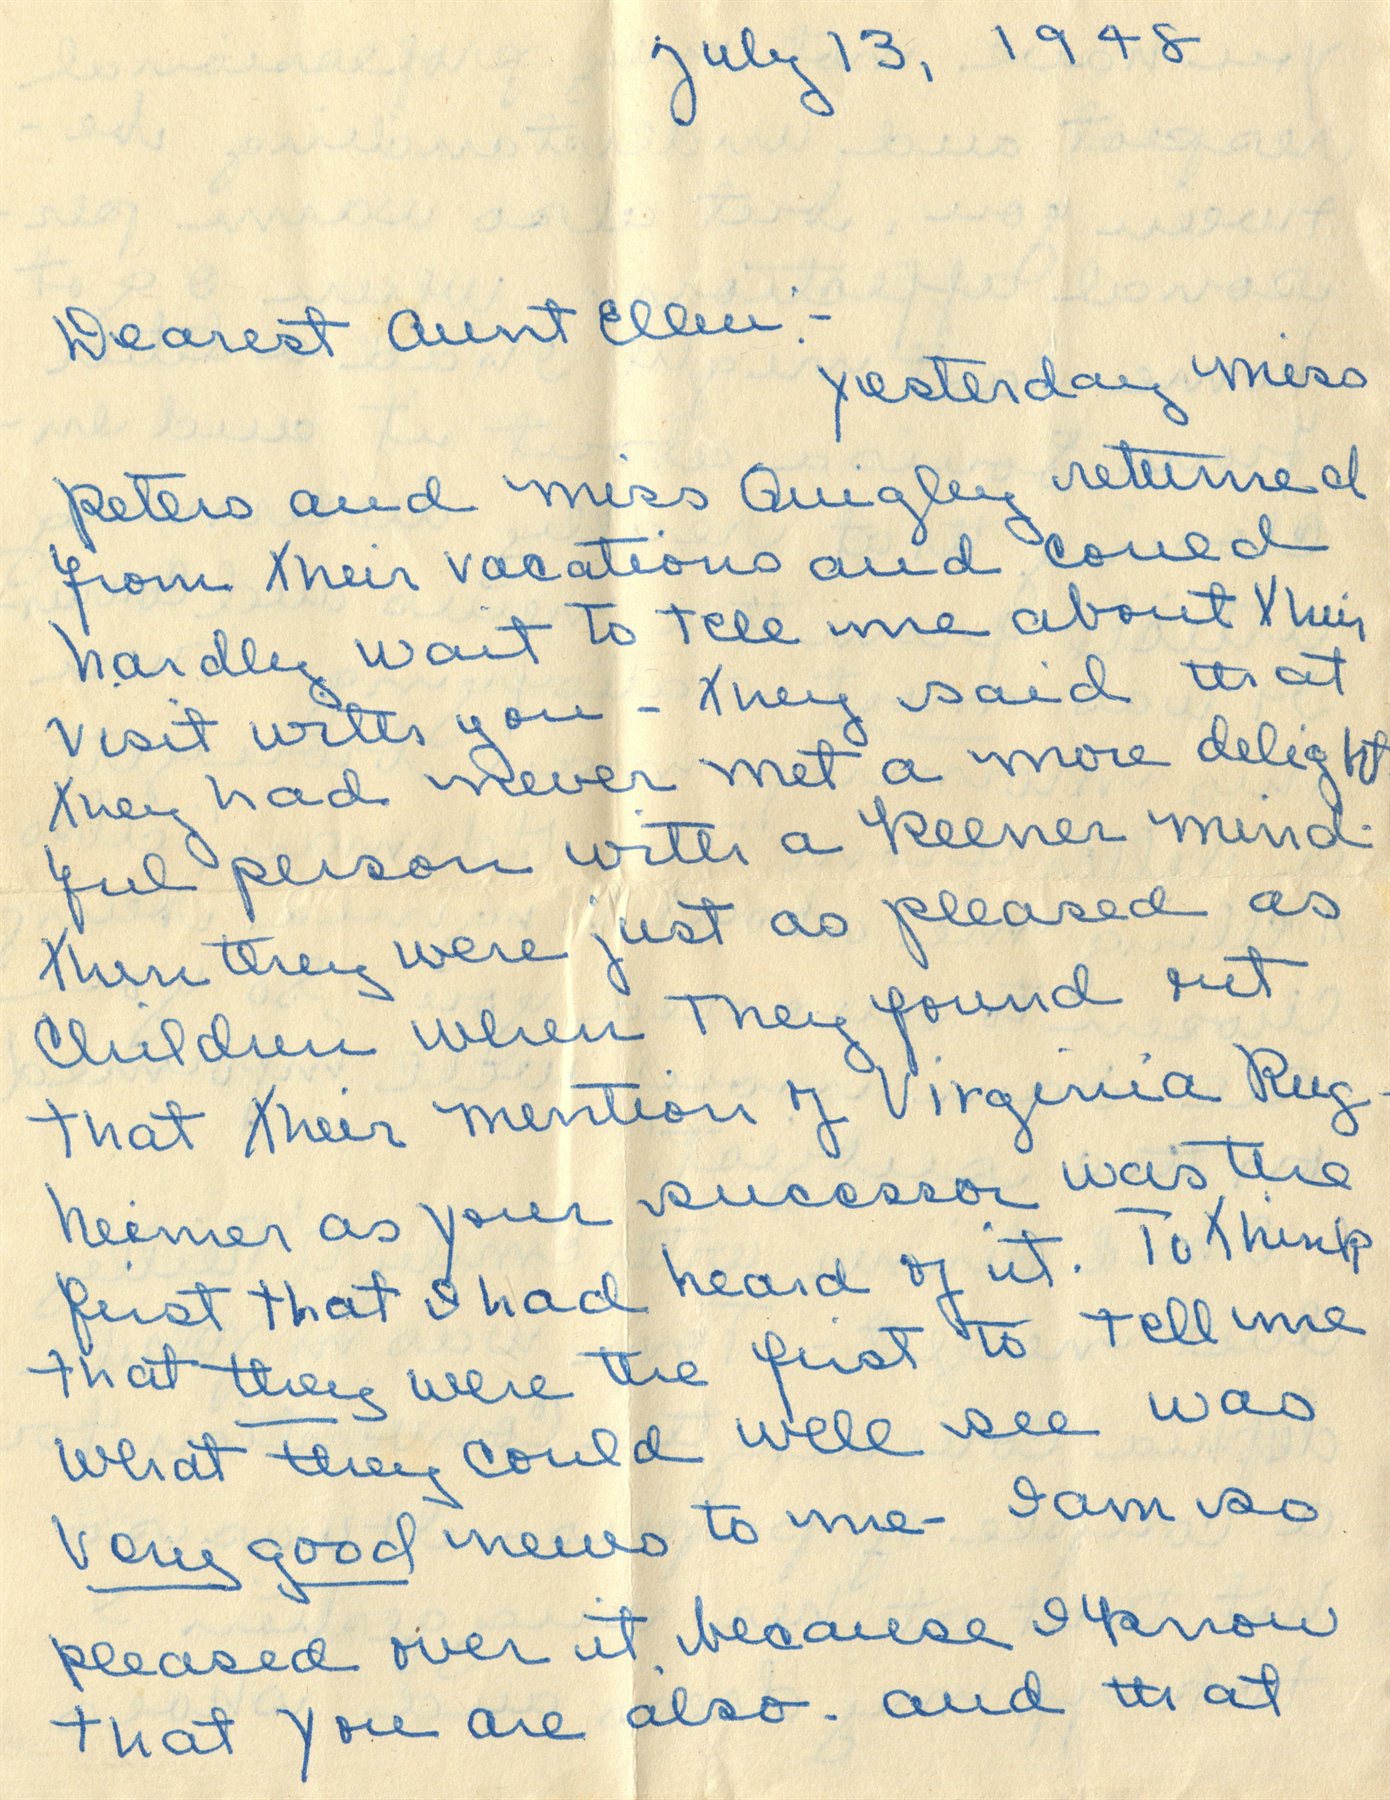 July 13, 1948
Dearest Aunt Ellen:-
Yesterday Miss
Peters and Miss Quigley returned
from their vacations and could
hardly wait to tell me about their
visit with you - They said that
they had never met a more delight
ful person with a keener mind.
Then they were just as pleased as
children when they found out
that their mention of Virginia Rug-
heimer as your successor was the
first that I had heard of it. To think
that they were the first to tell me
what they could well see was
very good news to me - I am so
pleased over it, because I know
that you are also. and that